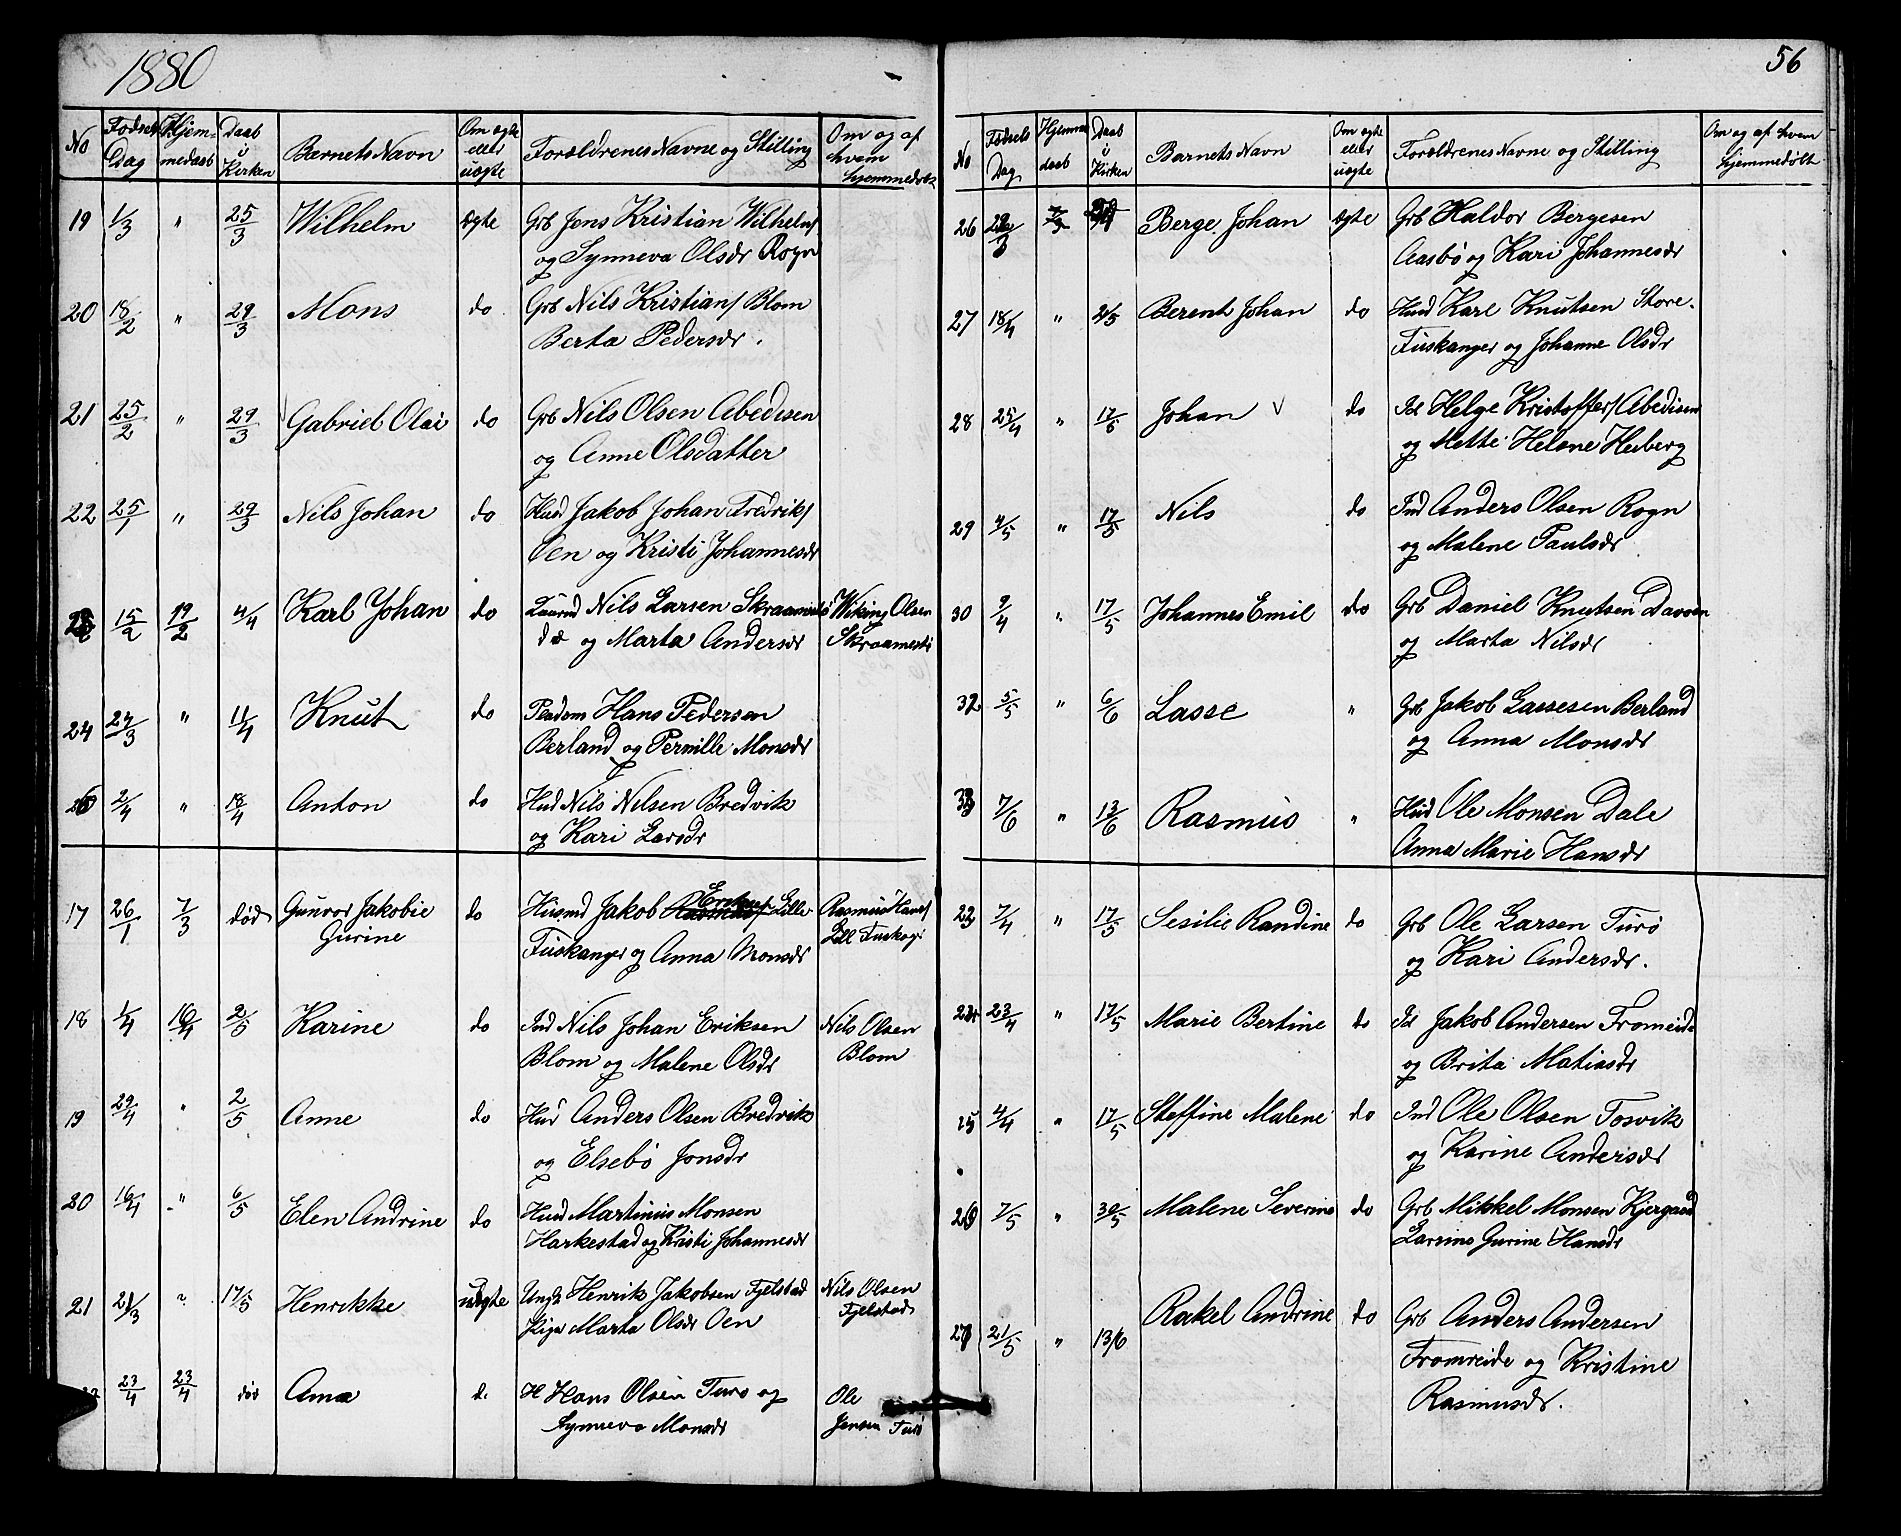 1880
56
No Fødsels Dag Hjem- medaab Daab i Kirken Barnets Navn Om ægte eller uægte Forældrenes Navne og Stilling Om og af hvem hjemmedøbt
19 1/3 " 25/3 Wilhelm ægte Grb Jens Kristian Wilhelms/
og Synneva Olsdr Rogn
20 18/2 " 29/3 Mons do Grb Nils Kristians/ Blom
Berta Pedersdr.
21 25/2 " 29/3 Gabriel Olai do Grb Nils Olsen Abedisen
og Anne Olsdatter
22 25/1 " 29/3 Nils Johan do Husd Jakob Johan Fredriks/
Oen og Kristi Johannesdr
23 15/2 19/2 4/4 Karl Johan do Nils Larsen Wiking Olsen
og Marta Andersdr Skraamestø
24 27/3 " 11/4 Knut do Hans Pedersen
Berland og Pernille Monsdr
25 2/4 " 18/4 Anton do Husd Nils Nilsen Bredvik
og Kari Larsdr
17 26/1 7/3 død Gunvor Jakobie do Husmd Jakob Eriks/ Lille Rasmus Hans/
Gurine Fuskanger og Anna Monsdr Lill Fuskog
18 1/4 16/4 2/5 Karine do Ind Nils Johan Eriksen Nils Olsen
Blom og Malene Olsdr Blom
19 29/4 " 2/5 Anne do Husd Anders Olsen Bredvik
og Elsebø Jonsdr
20 16/4 " 6/5 Elen Andrine do Husd Martinus Monsen
Harkestad og Kristi Johannesdr
21 21/3 " 17/5 Henrikke uægte Ungk Henrik Jakobsen Fjelstad Nils Olsen
Piga Marta Olsdr Oen Fjelstad
22 23/4 23/4 død Anna d. H Hans Olsen Turø og Ole
Synneva Monsdr Jensen Turø
No Fødsels Dag Hjemme daab Daab i Kirken Barnets Navn Om ægte eller uægte Forældrenes Navne og Stilling Om og af hvem hjemmedøbt
26 Berge Johan ægte Grb Haldor Bergesen
Aasbø og Kari Johannesdr
27 18/4 " 2/5 Berent Johan do Husd Karl Knutsen Store.
Fuskanger og Johanne Olsdr
28 25/4 " 17/5 Johan do Id Helge Kristoffers/ Abedisen
og Mette Helene Heiberg
29 4/5 " 17/5 Nils do Ind Anders Olsen Rogn
og Malene Paulsdr
30 9/4 " 17/5 Johannes Emil do Grb Daniel Knutsen Davøen
og Marta Nilsdr
32 5/5 " 6/6 Lasse " Grb Jakob Lassesen Berland
og Anna Monsdr
33 7/6 " 13/6 Rasmus " Husd Ole Monsen Dale
Anna Marie Hansdr
23 7/4 " 17/5 Sesilie Randine do Grb Ole Larsen Turø
og Kari Andersdr.
24 23/4 " 17/5 Marie Bertine do Id Jakob Andersen Fromreide
og Brita Matiasdr
25 4/4 " 17/5 Steffine Malene do Ind Ole Olsen Tosvik
og Karine Andersdr
26 7/5 " 30/5 Malene Severine do Grb Mikkel Monsen Kjergaard
Larsine Gurine Hansdr
27 21/5 " 13/6 Rakel Andrine do Grb Anders Andersen
Fromreide og Kristine
Rasmusdr.